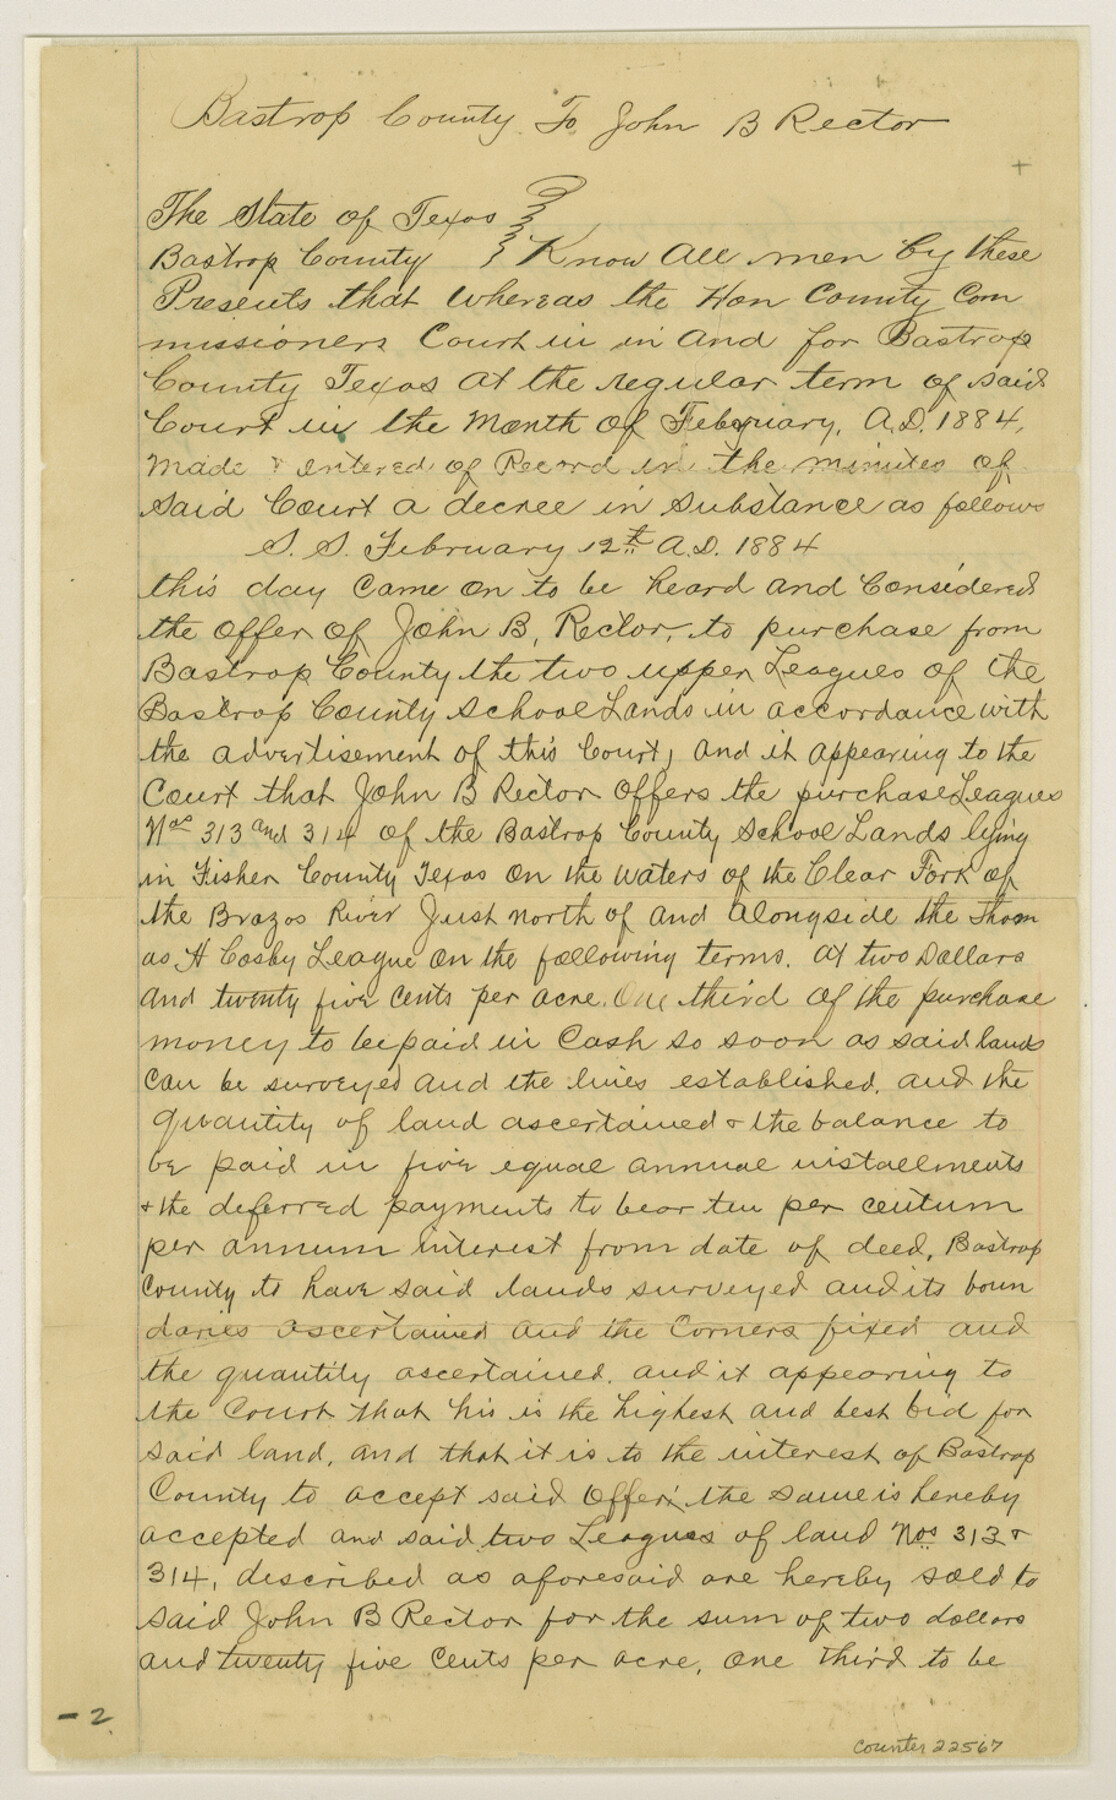 Bastrop County To John B Rector
+
The State of Texas
Bastrop County } Know All men by these
Presents that whereas the Hon County Com
missioners Court in in and for Bastrop
County Texas at the regular term of said
Court in the Month of February, A.D. 1884,
made & entered of Record in the minutes of
said Court a decree in substance as follows
S. S. February 12th A.D. 1884
this day came on to be heard and Considered
the offer of John B, Rector, to purchase from
Bastrop County the two upper Leagues of the
Bastrop County School Lands in accordance with
the advertisement of this Court, and it appearing to the
Court that John B Rector offers the purchase Leagues
Nos 313 and 314 of the Bastrop County School Lands lying
in Fisher County Texas on the waters of the Clear Fork of
the Brazos River Just north of and alongside the Thom
as H Cosby League on the following terms. at two Dollars
and twenty five cents per acre. One third of the purchase
money to be paid in Cash so soon as said lands
can be surveyed and the lines established. and the
quantity of land ascertained & the balance to
be paid in five equal annual installments
& the deferred payments to bear ten per centum
per annum interest from date of deed, Bastrop
County to have said lands surveyed and its boun
daries ascertained and the corners fixed and
the quantity ascertained. and it appearing to
the Court that his is the highest and best bid for
said land, and that it is to the interest of Bastrop
County to accept said offer, the same is hereby
accepted and said two Leagues of land Nos 313 &
314, described as aforesaid are hereby sold to
said John B Rector for the sum of two dollars
and twenty five cents per acre, one third to be
- 2
counter 22567